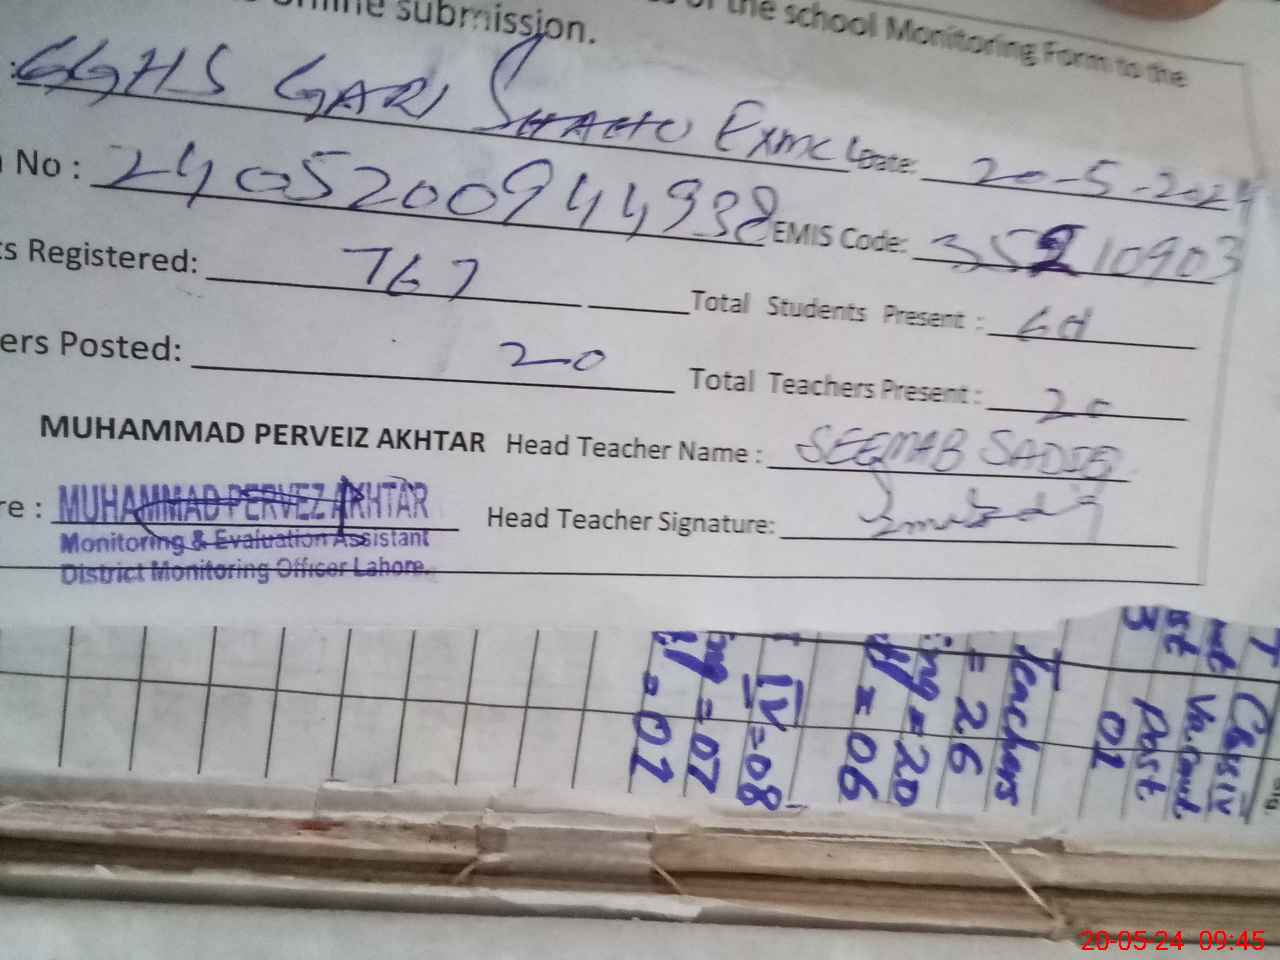 online submission.
of the school Monitoring Form to the
: GGHS GARI SHAHU Exmc L Date: 20-5-2024
No : 240520094493 8 EMIS Code: 35210903
s Registered: 767 Total Students Present :
ers Posted: 20 Total Teachers Present : 20
MUHAMMAD PERVEIZ AKHTAR Head Teacher Name : SEEMAB SADIQ
re : MUHAMMAD PERVEZ AKHTAR Head Teacher Signature:
Monitoring & Evaluation Assistant
District Monitoring Officer Lahore.
Class IV
Vacant
Post
01
Teachers
= 26
ing = 20
= 06
IV = 08
ing = 07
= 01
20-05-24 09:45